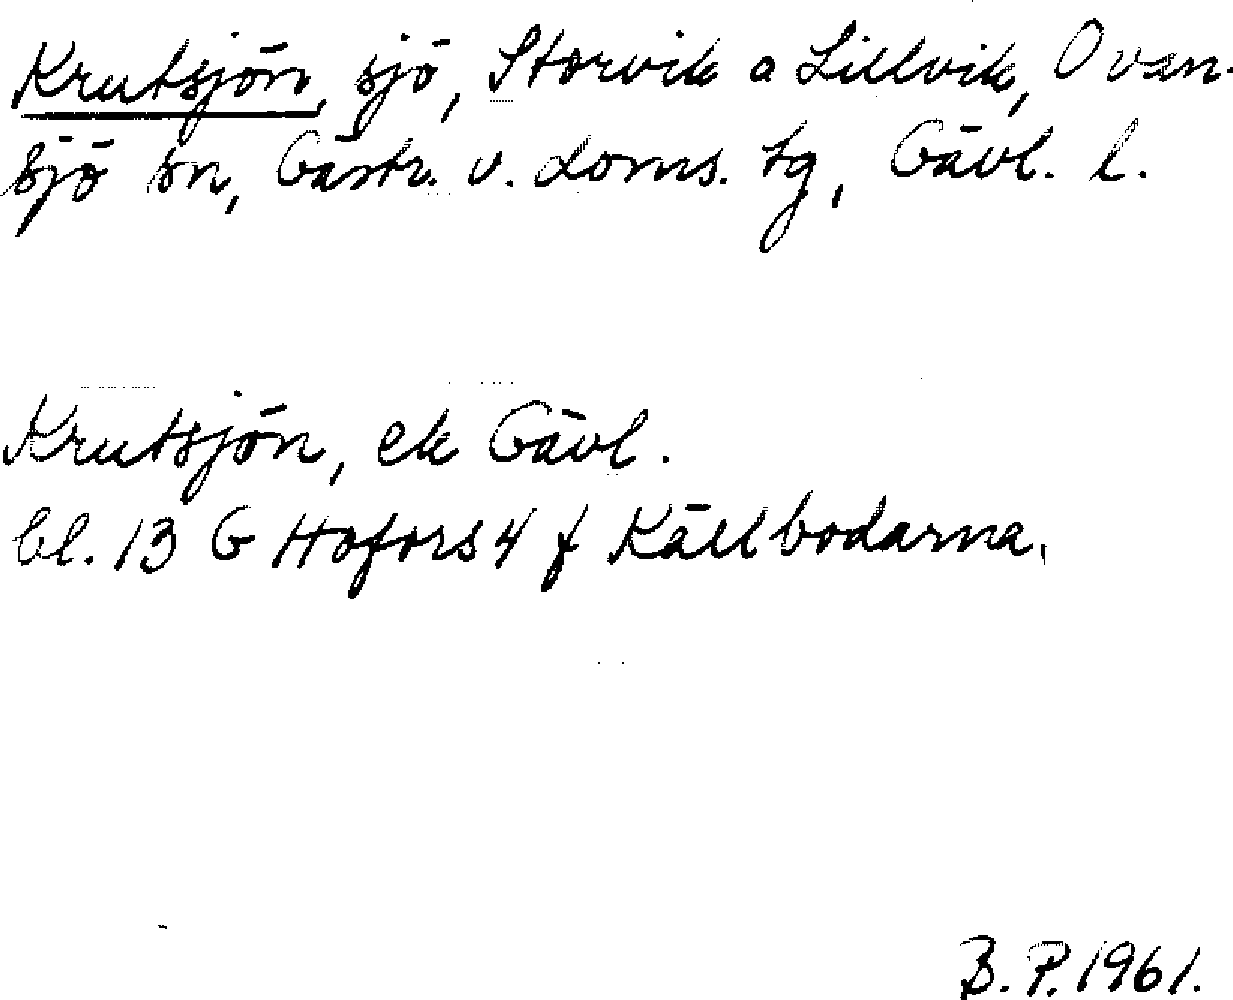 Krutsjön, sjö, Storvik o Lillvik, Ovan-
sjö sn, Gästr. v. doms. tg, Gävl. l.
Krutsjön, ek Gävl.
bl. 13 G Hofors 4 f Källbodarna.
B. P. 1961.